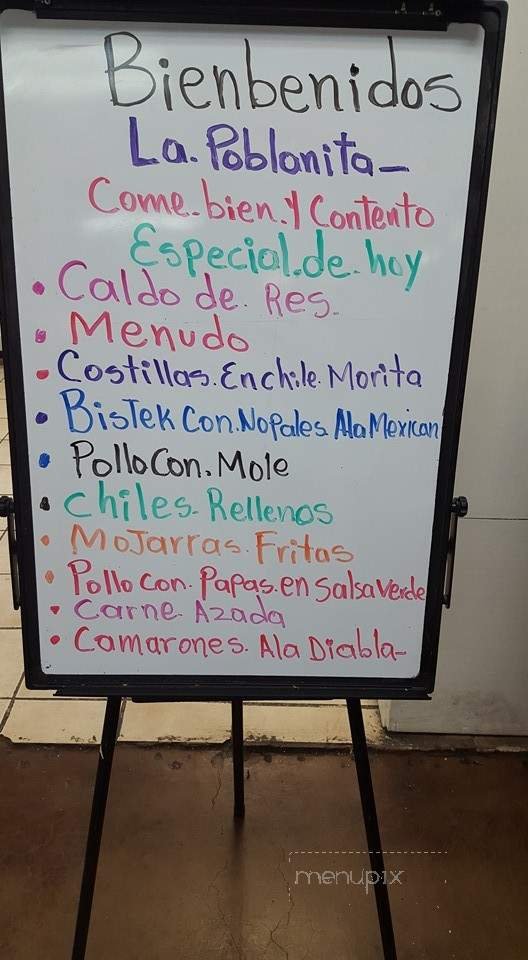 Bienbenidos
La.Poblanita-
Come.bien.y Contento
Especial.de.hoy
• Caldo de. Res.
• Menudo
• Costillas.Enchile.Morita
• BisTek Con.Nopales Ala Mexican
• Pollo Con.Mole
• Chiles-Rellenos
• MoJarras.Fritas
• Pollo Con.Papas.en SalsaVerde
• Carne Azada
• Camarones.Ala Diabla-
menupix